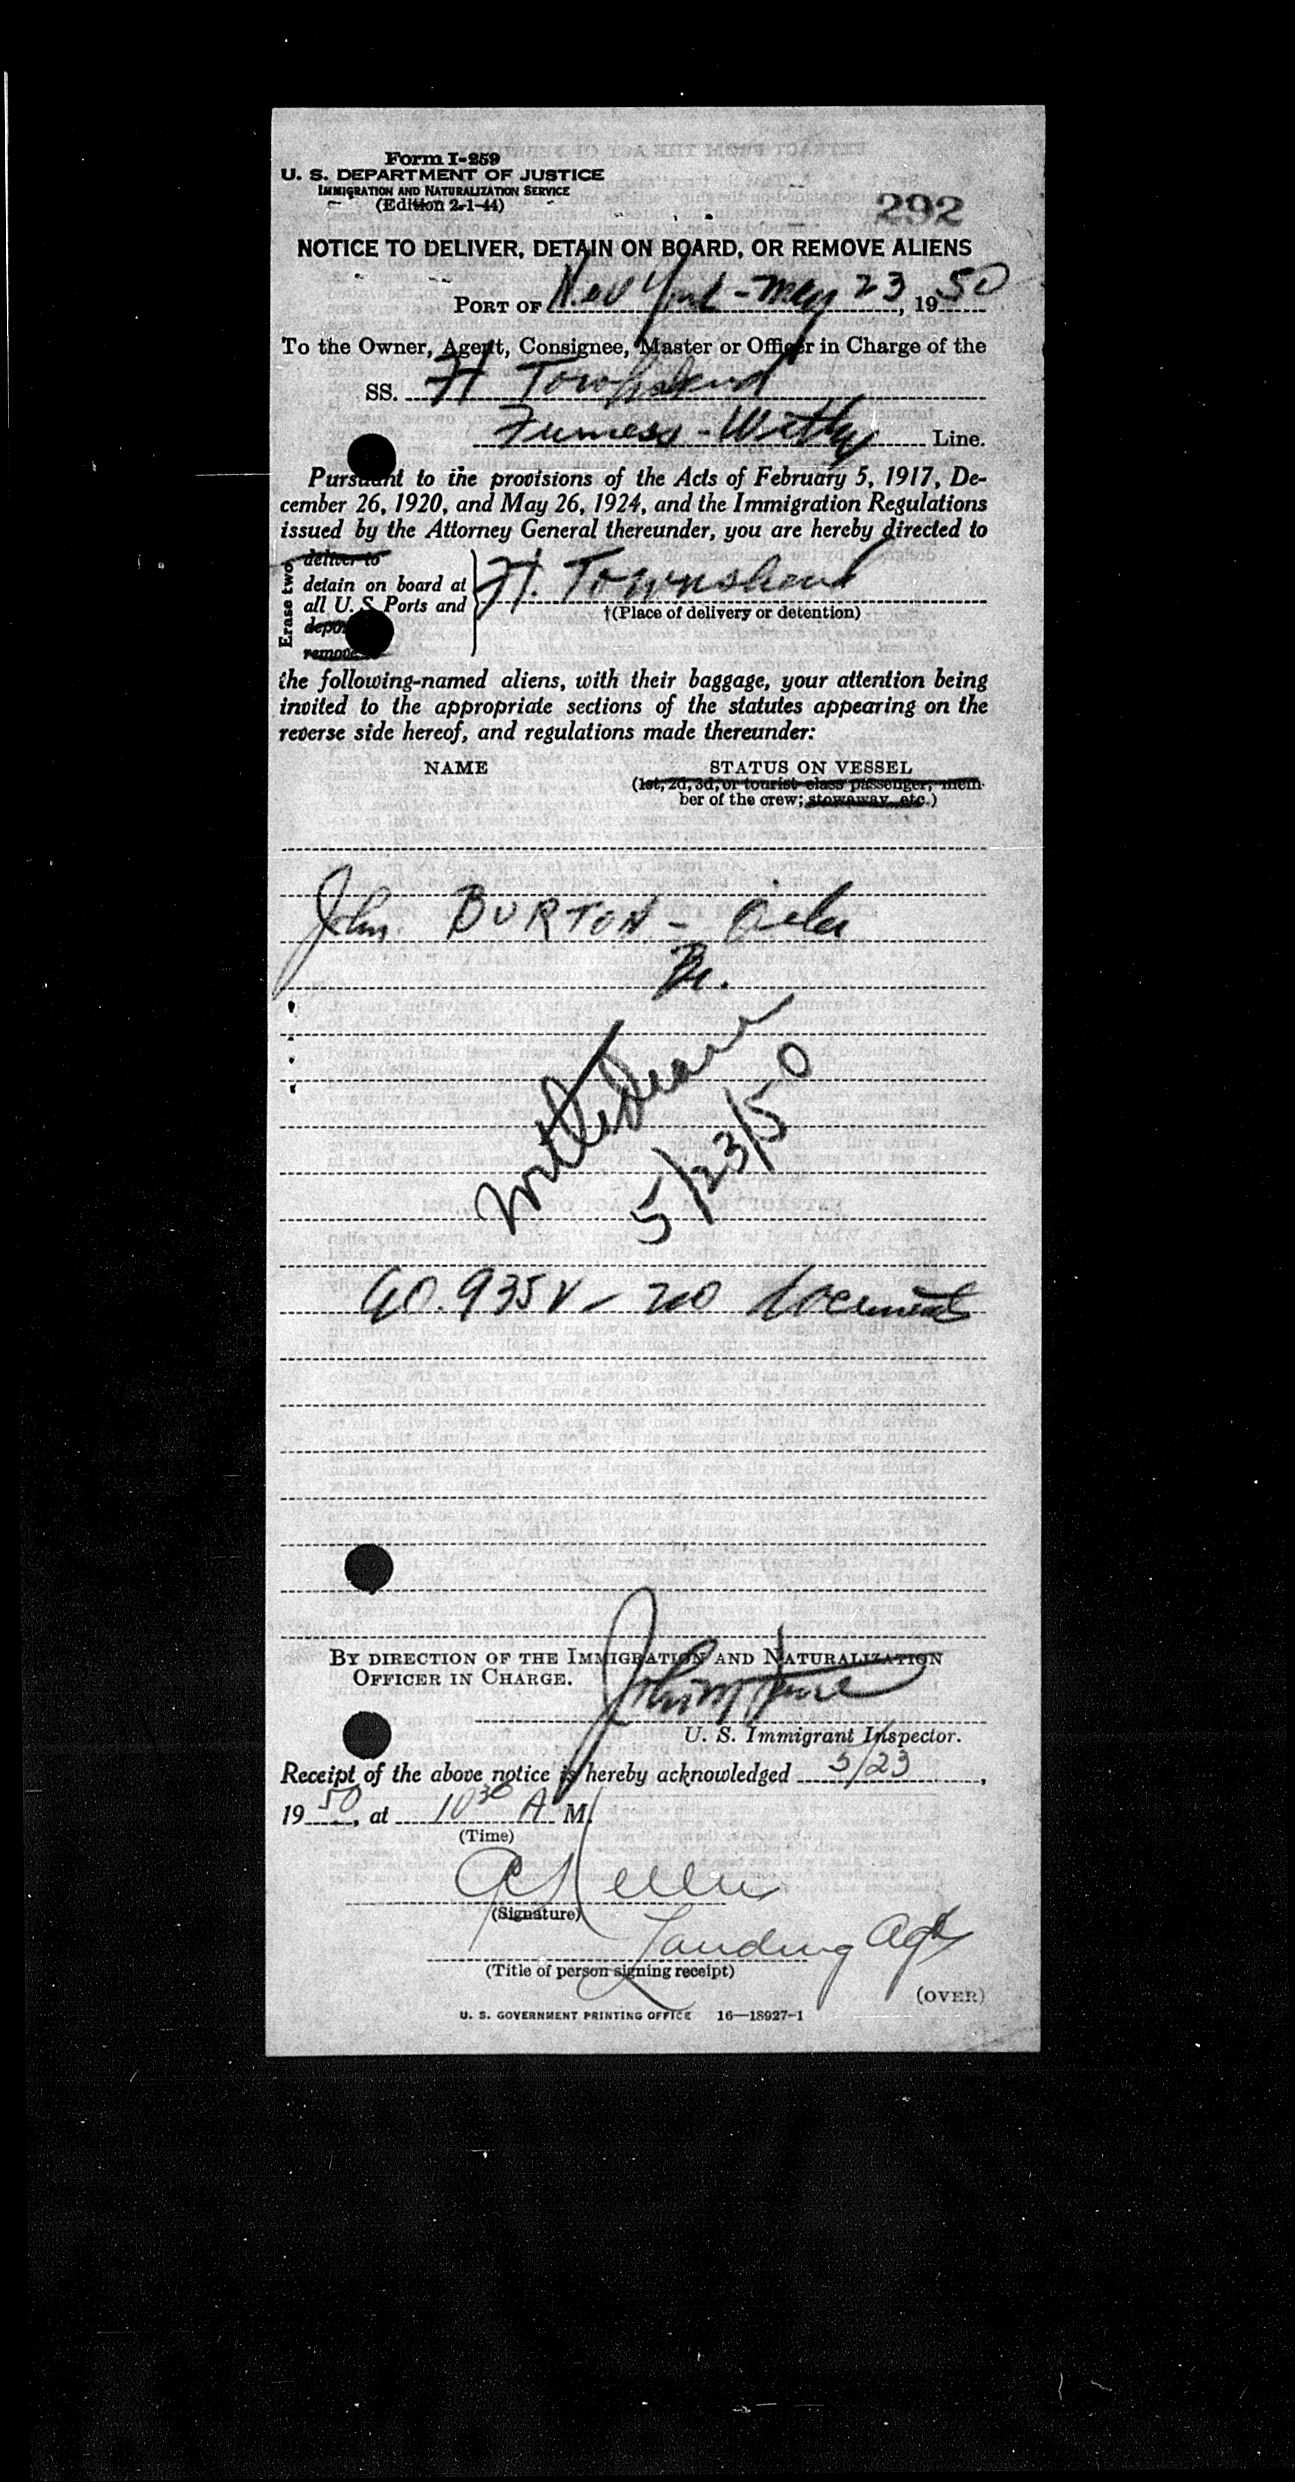 Form I-259
U. S. DEPARTMENT OF JUSTICE
IMMIGRATION AND NATURALIZATION SERVICE
(Edition 2-1-44)
292
NOTICE TO DELIVER, DETAIN ON BOARD, OR REMOVE ALIENS
PORT OF New York - May 23, 1950
To the Owner, Agent, Consignee, Master or Officer in Charge of the
SS. H Townshend
Furness - Withy Line.
Pursuant to the provisions of the Acts of February 5, 1917, De-
cember 26, 1920, and May 26, 1924, and the Immigration Regulations
issued by the Attorney General thereunder, you are hereby directed to
Erase two
deliver to
detain on board at
all U. S. Ports and
remove
H. Townshend
†(Place of delivery or detention)
the following-named aliens, with their baggage, your attention being
invited to the appropriate sections of the statutes appearing on the
reverse side hereof, and regulations made thereunder:
NAME STATUS ON VESSEL
(1st, 2d, 3d, or tourist class passenger, mem-
ber of the crew; stowaway, etc.)
John BURTON - Oiler
Br.
5/23/50
60.935 V - no documents
BY DIRECTION OF THE IMMIGRATION AND NATURALIZATION
OFFICER IN CHARGE.
John
U. S. Immigrant Inspector.
Receipt of the above notice is hereby acknowledged 5/23,
1950, at 10 30 A M.
(Time)
(Signature)
Landing Agt
(Title of person signing receipt)
(OVER)
U. S. GOVERNMENT PRINTING OFFICE 16—18927-1